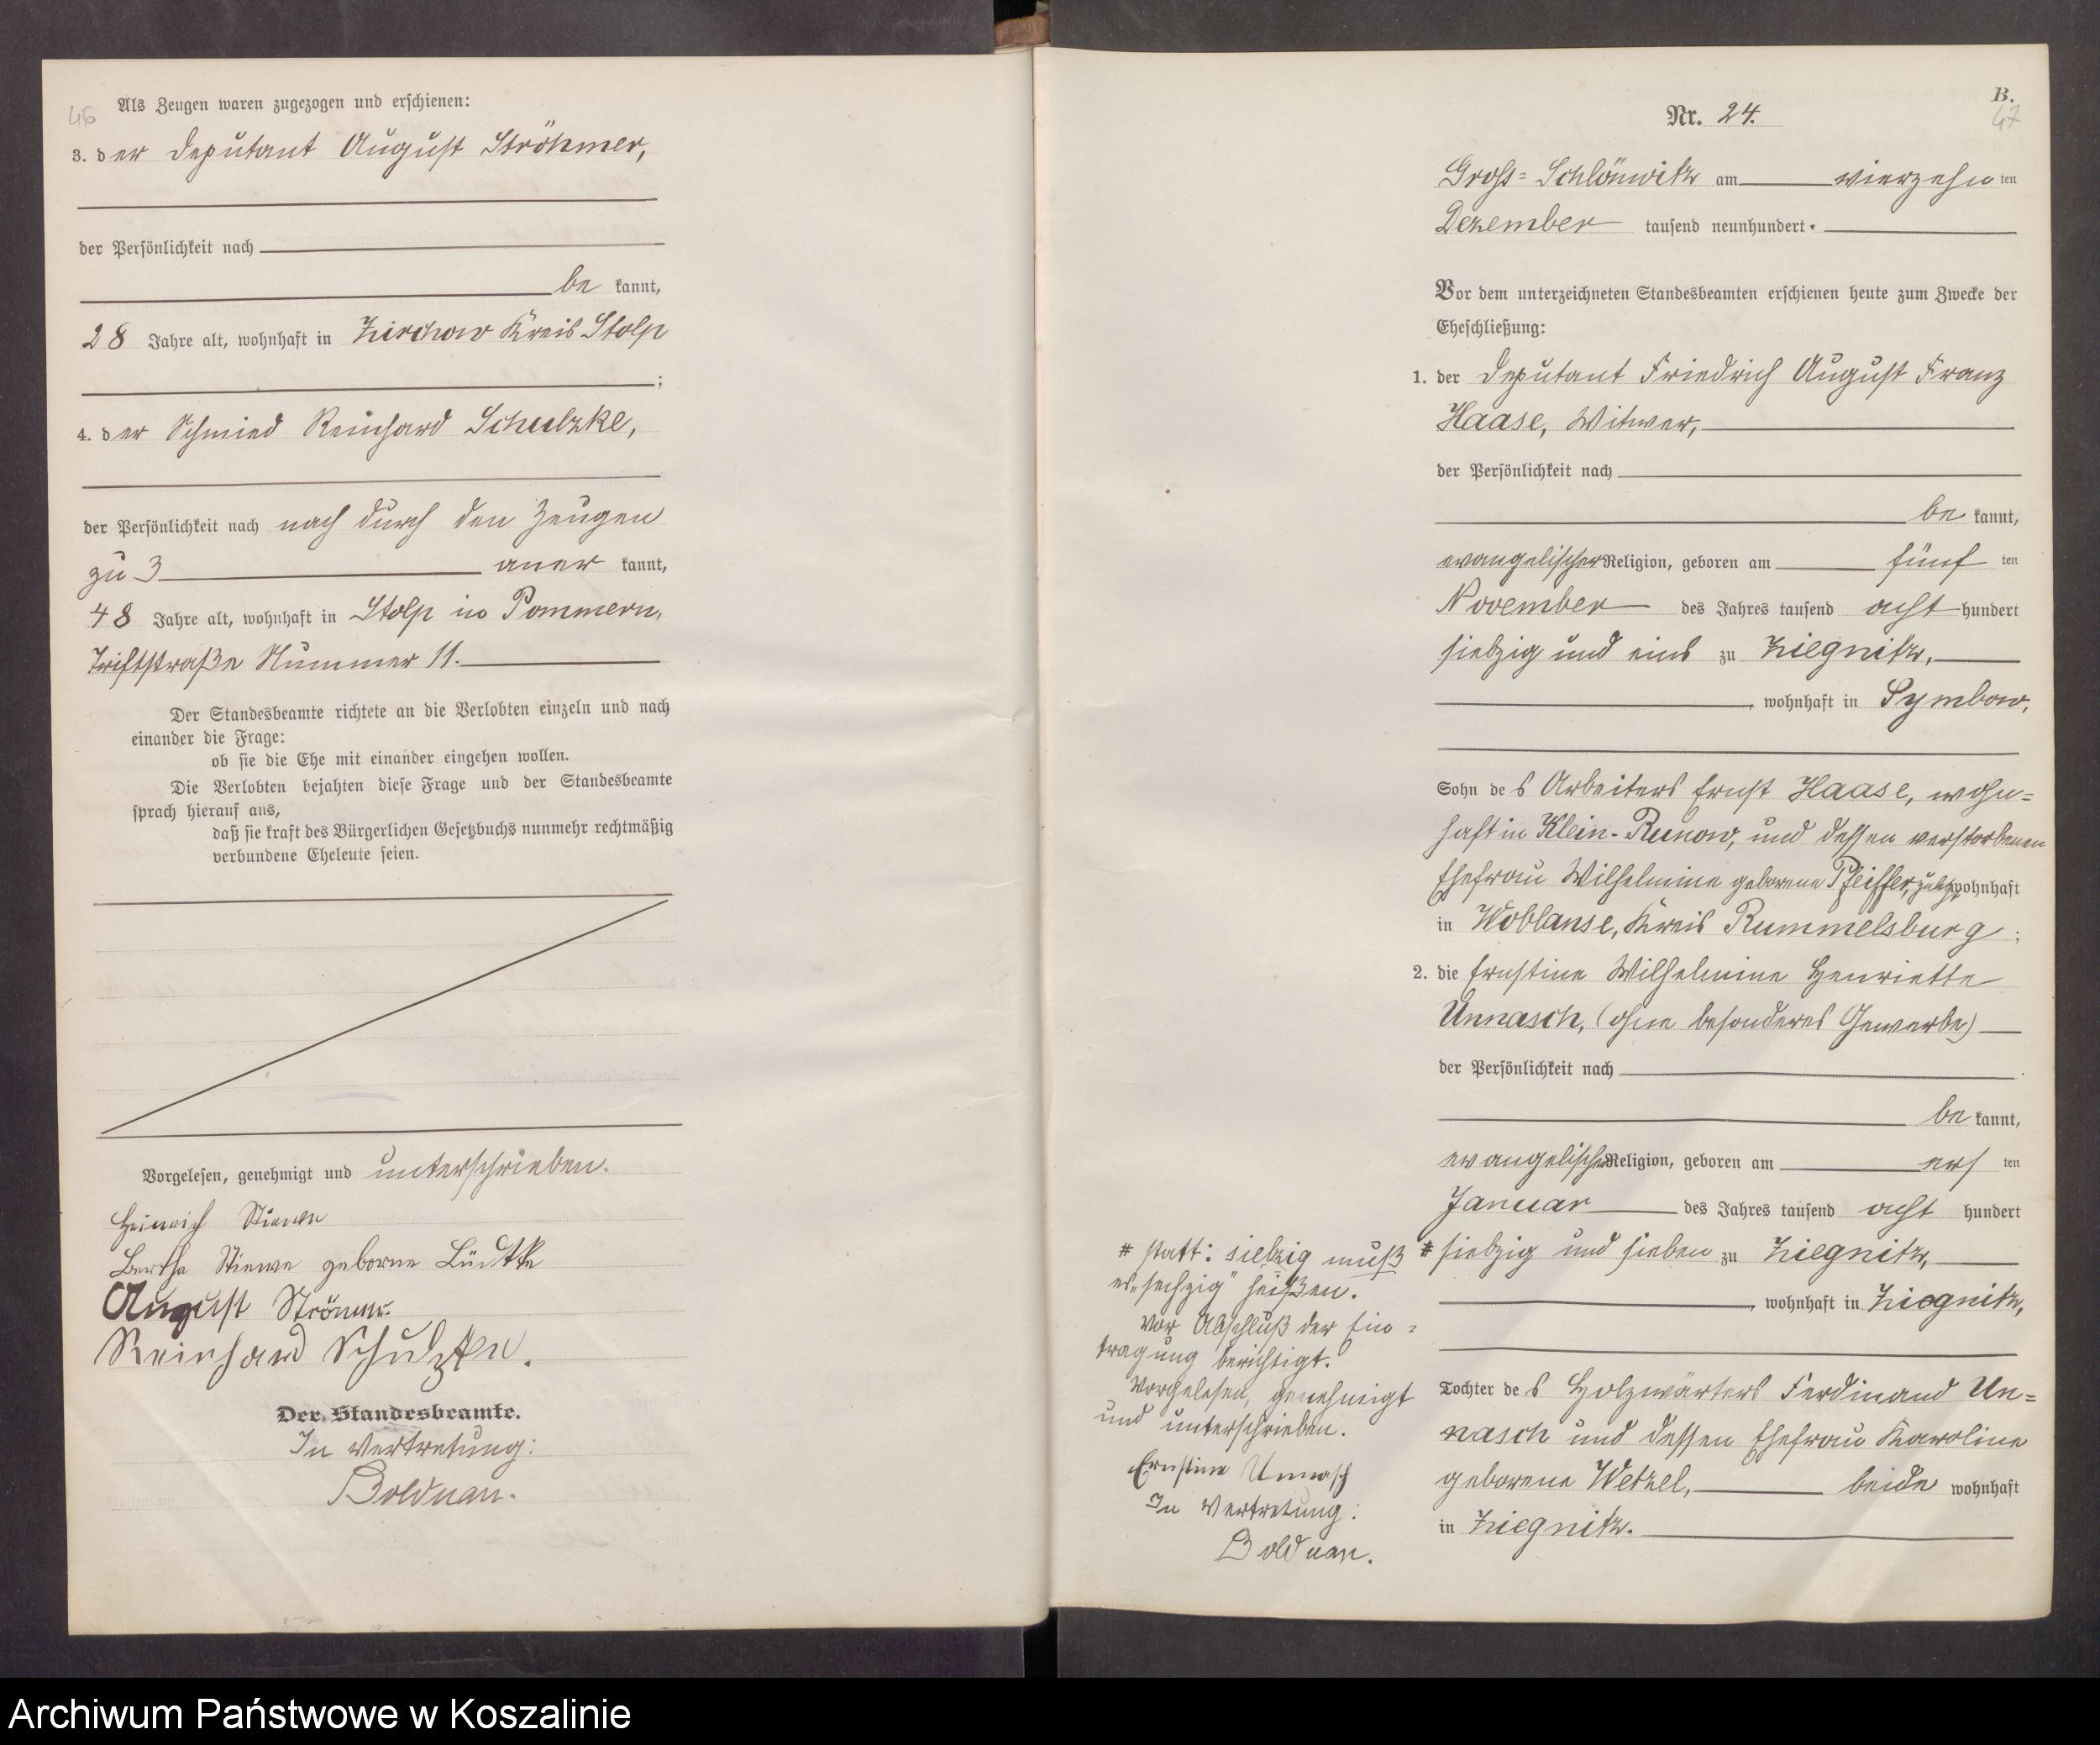 46
Als Zeugen waren zugezogen und erschienen:
3. der Deputant August Ströhmer,
der Persönlichkeit nach
be kannt,
28 Jahre alt, wohnhaft in Zirchow Kreis Stolp
;
4. der Schmied Reinhard Schulzke,
der Persönlichkeit nach nach durch den Zeugen
zu 3 aner kannt,
48 Jahre alt, wohnhaft in Stolp in Pommern,
Triftstraße Nummer 11.
Der Standesbeamte richtete an die Verlobten einzeln und nach
einander die Frage:
ob sie die Ehe mit einander eingehen wollen.
Die Verlobten bejahten diese Frage und der Standesbeamte
sprach hierauf aus,
daß sie kraft des Bürgerlichen Gesetzbuchs nunmehr rechtmäßig
verbundene Eheleute seien.
Vorgelesen, genehmigt und unterschrieben.
Heinrich Stiewe
Bertha Stiewe geborne Lüdtke
August Strömer.
Reinhard Schulzke.
Der Standesbeamte.
In Vertretung:
Bolduan.
B.
47
Nr. 24.
Gross=Schlönwitz am vierzehn ten
Dezember tausend neunhundert.
Vor dem unterzeichneten Standesbeamten erschienen heute zum Zwecke der
Eheschließung:
1. der Deputant Friedrich August Franz
Haase, Witwer,
der Persönlichkeit nach
be kannt,
evangelischer Religion, geboren am fünf ten
November des Jahres tausend acht hundert
siebzig und eins zu Ziegnitz,
, wohnhaft in Symbow,
Sohn des Arbeiters Ernst Haase, wohn=
haft in Klein-Runow, und dessen verstorbenen
Ehefrau Wilhelmine geborene Pfeiffer, zuletzt wohnhaft
in Woblanse, Kreis Rummelsburg ;
2. die Ernstine Wilhelmine Henriette
Unnasch, (ohne besonderes Gewerbe)
der Persönlichkeit nach
be kannt,
evangelischer Religion, geboren am ers ten
Januar des Jahres tausend acht hundert
# siebzig und sieben zu Ziegnitz,
, wohnhaft in Ziegnitz,
Tochter des Holzwärters Ferdinand Un=
nasch und dessen Ehefrau Karoline
geborene Wetzel, beide wohnhaft
in Ziegnitz.
# statt: siebzig muß
es „sechzig" heißen.
Vor Abschluß der Ein=
tragung berichtigt.
Vorgelesen, genehmigt
und unterschrieben.
Ernstine Unnasch
In Vertretung:
Bolduan.
Archiwum Państwowe w Koszalinie